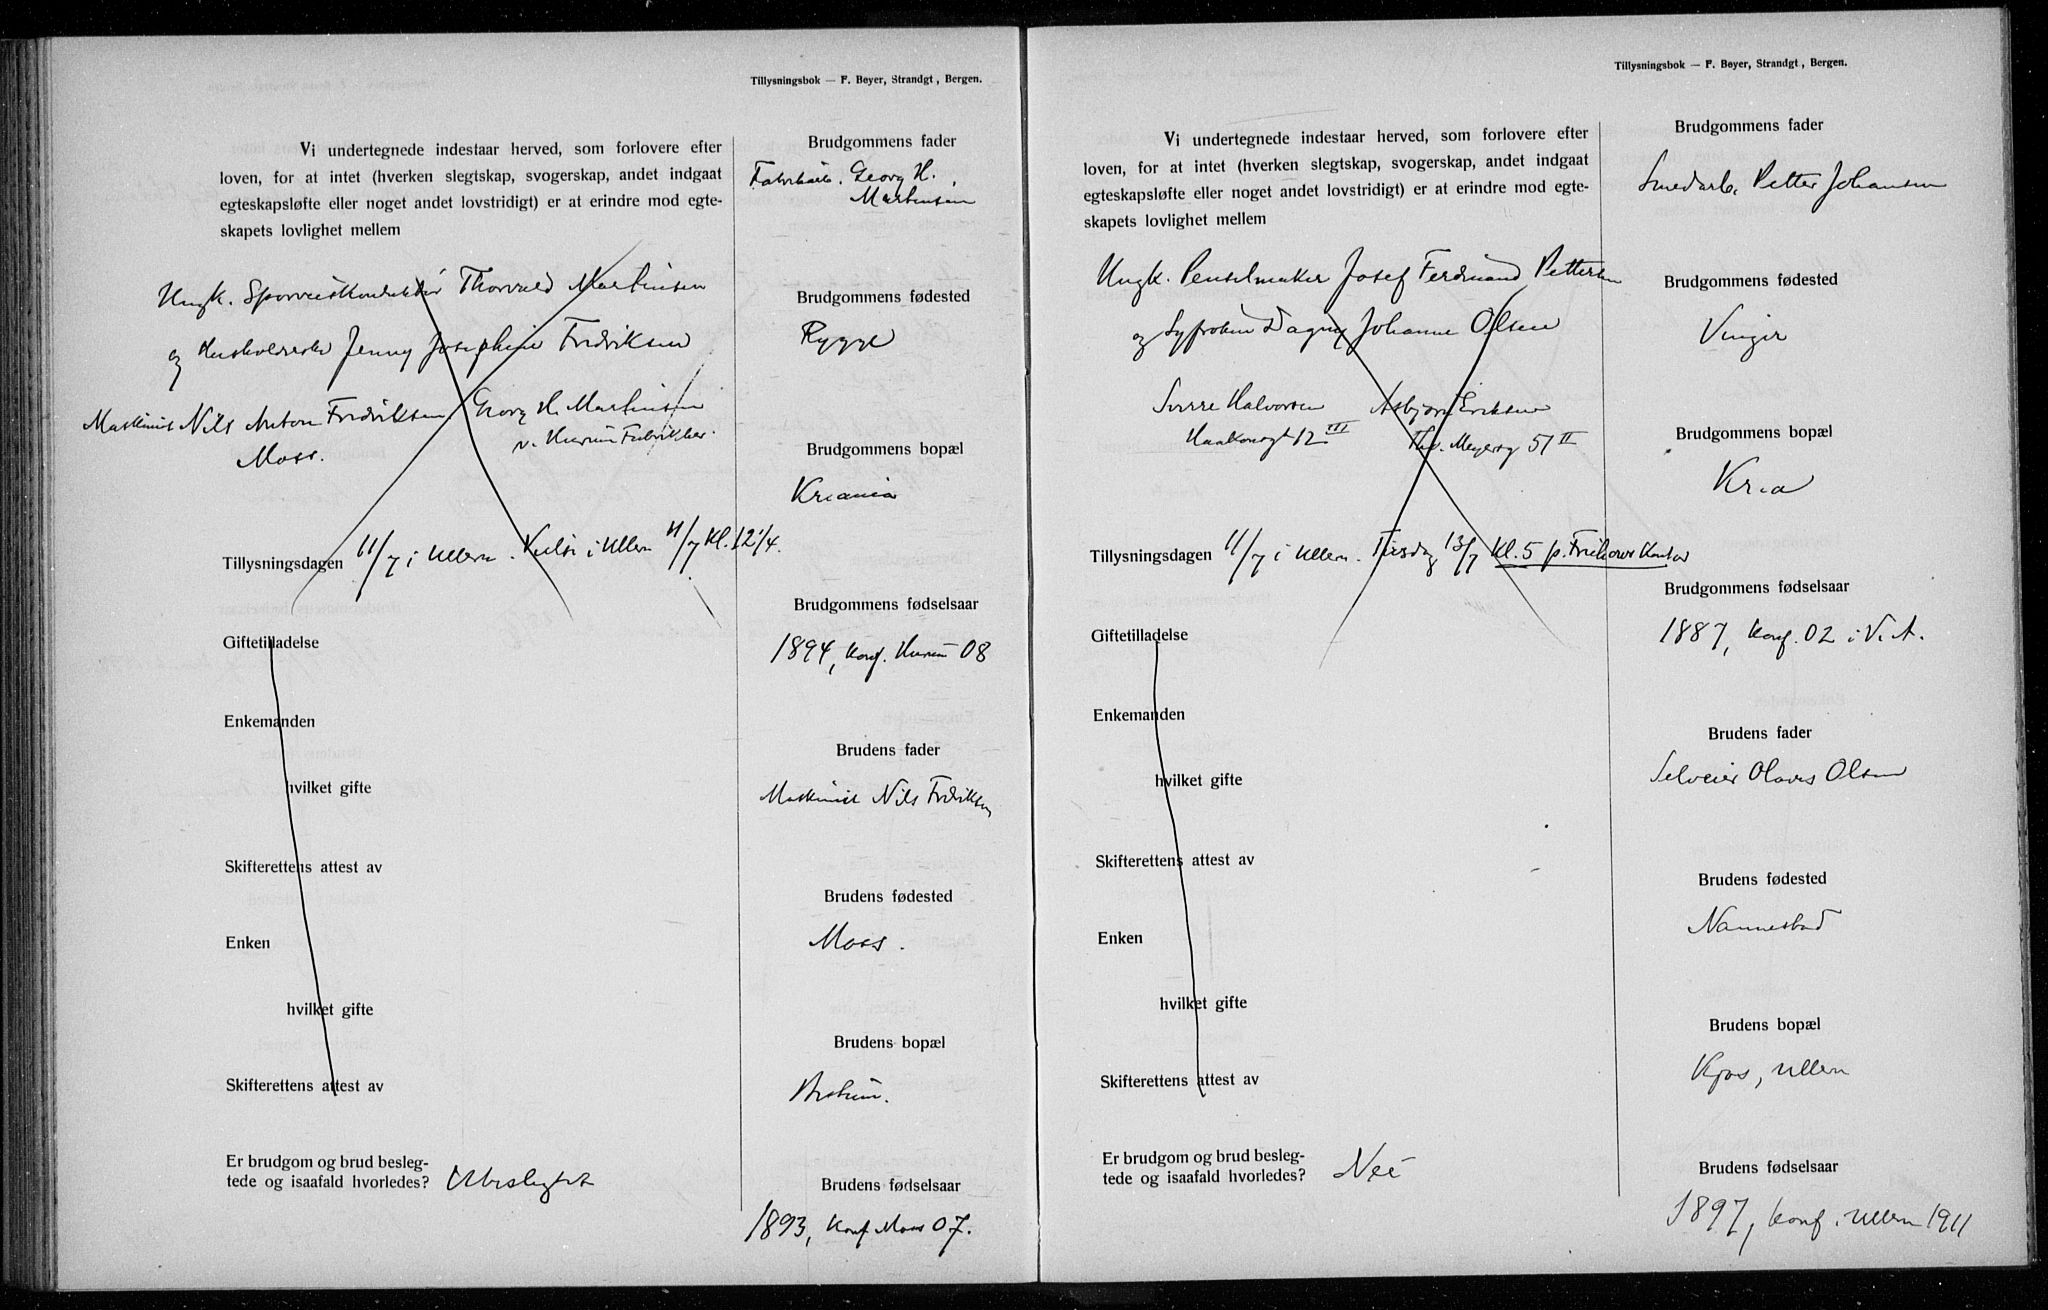 Tillysningsbok — F. Beyer, Strandgt, Bergen.
Vi undertegnede indestaar herved, som forlovere efter
loven, for at intet (hverken slegtskap, svogerskap, andet indgaat
egteskapsløfte eller noget andet lovstridigt) er at erindre mod egte-
skapets lovlighet mellem
Ungk. Sporveiskonduktør Thorvald Martinsen
og Jenny Josephine Fredriksen
Maskinist Nils Anton Fredriksen Georg H. Martinsen
Moss. v. Hurum Fabrikker.
Tillysningsdagen 11/7 i Ullern. i Ullern 11/7 Kl. 12 1/4.
Giftetilladelse
Enkemanden
hvilket gifte
Skifterettens attest av
Enken
hvilket gifte
Skifterettens attest av
Er brudgom og brud besleg-
tede og isaafald hvorledes? Ubeslegtet
Brudgommens fader
Fabrikarb. Georg H.
Martinsen
Brudgommens fødested
Rygge
Brudgommens bopæl
Kr.ania
Brudgommens fødselsaar
1894, konf. Hurum 08
Brudens fader
Maskinist Nils Fredriksen
Brudens fødested
Moss.
Brudens bopæl
Bestum.
Brudens fødselsaar
1893, konf Moss 07.
Tillysningsbok — F. Beyer, Strandgt, Bergen.
Vi undertegnede indestaar herved, som forlovere efter
loven, for at intet (hverken slegtskap, svogerskap, andet indgaat
egteskapsløfte eller noget andet lovstridigt) er at erindre mod egte-
skapets lovlighet mellem
Ungk. Penselmaker Josef Ferdinand Pettersen
og Syfrøken Dagny Johanne Olsen
Sverre Halvorsen Asbjørn Eriksen
Haakonsgt 12 III Thv. Meyersg 51 II
Tillysningsdagen 11/7 i Ullern. Tirsdag 13/7 Kl. 5 p. Kontor
Giftetilladelse
Enkemanden
hvilket gifte
Skifterettens attest av
Enken
hvilket gifte
Skifterettens attest av
Er brudgom og brud besleg-
tede og isaafald hvorledes? Nei
Brudgommens fader
Smedarb. Petter Johansen
Brudgommens fødested
Vinger
Brudgommens bopæl
Kr.a
Brudgommens fødselsaar
1887, konf. 02 i V. A.
Brudens fader
Selveier Olaves Olsen
Brudens fødested
Nannestad
Brudens bopæl
Kjos, Ullern
Brudens fødselsaar
1897, konf. Ullern 1911